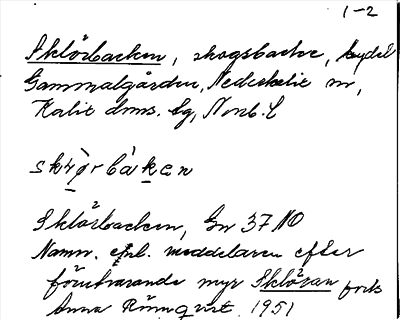 1-2
Sklörbacken, skogsbacke, bydel
Gammalgården, Nederkalix sn,
Kalix dms. lg, Norrb. l
skɩ̀ørbàken
Sklörbacken, Gn 37 NO
Namn. enl. meddelaren efter
förutvarande myr Skloran
Anna Rönnqvist 1951